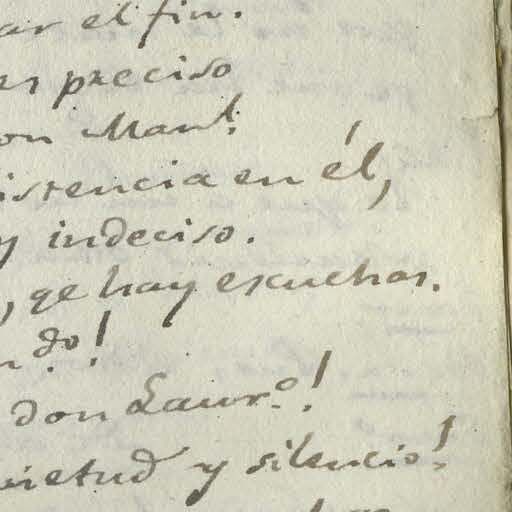 ar el fin.
es preciso
on Man.l
istencia en él,
y indeciso.
, qe hay escuchas.
n.do!
don Laur.o!
uietud y silencio!